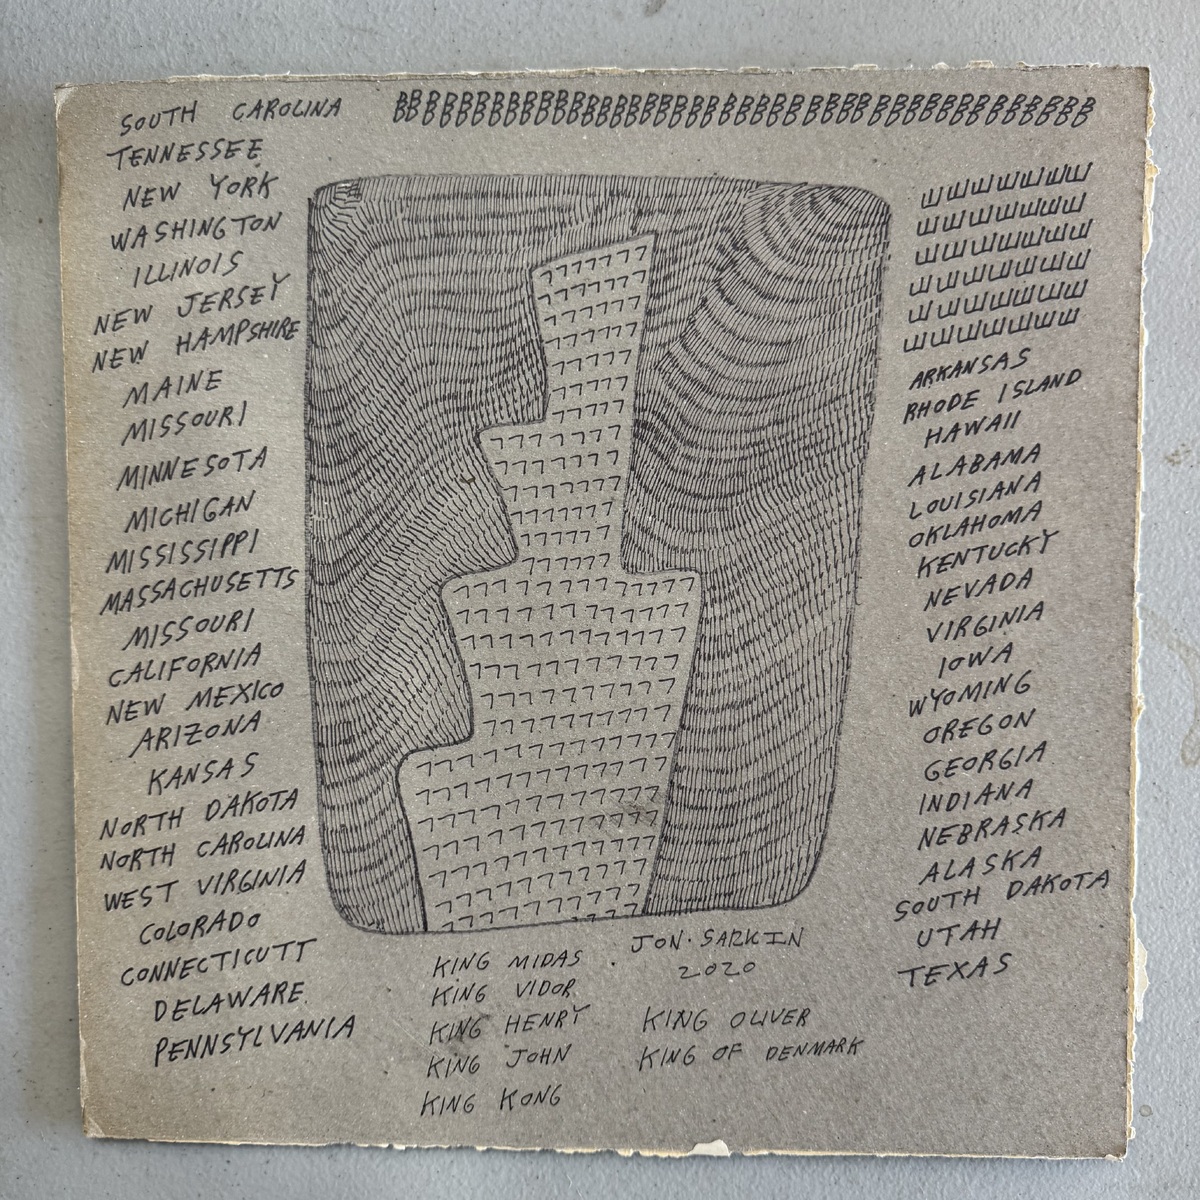 SOUTH CAROLINA
TENNESSEE
NEW YORK
WASHINGTON
ILLINOIS
NEW JERSEY
NEW HAMPSHIRE
MAINE
MISSOURI
MINNESOTA
MICHIGAN
MISSISSIPPI
MASSACHUSETTS
MISSOURI
CALIFORNIA
NEW MEXICO
ARIZONA
KANSAS
NORTH DAKOTA
NORTH CAROLINA
WEST VIRGINIA
COLORADO
CONNECTICUTT
DELAWARE
PENNSYLVANIA
KING MIDAS
KING VIDOR
KING HENRY
KING JOHN
KING KONG
JON SARKIN
2020
KING OLIVER
KING OF DENMARK
ARKANSAS
RHODE ISLAND
HAWAII
ALABAMA
LOUISIANA
OKLAHOMA
KENTUCKY
NEVADA
VIRGINIA
IOWA
WYOMING
OREGON
GEORGIA
INDIANA
NEBRASKA
ALASKA
SOUTH DAKOTA
UTAH
TEXAS